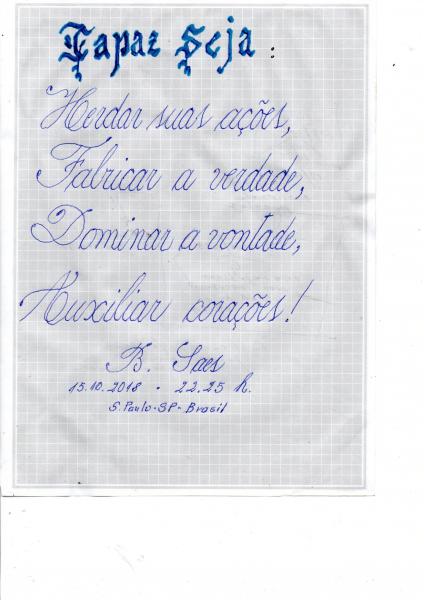 Capaz Seja :
Herdar suas ações,
Fabricar a verdade,
Dominar a vontade,
Auxiliar corações!
B. Saes
15.10.2018 . 22.25 h.
S.Paulo-SP-Brasil